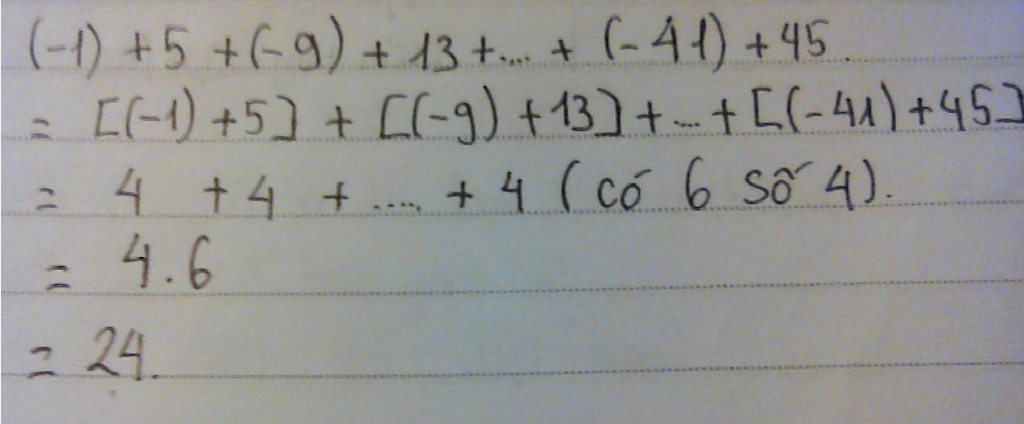 (-1) + 5 + (-9) + 13 + ... + (-41) + 45.
= [(-1) + 5] + [(-9) + 13] + ... + [(-41) + 45]
= 4 + 4 + ..... + 4 (có 6 số 4).
= 4.6
= 24.